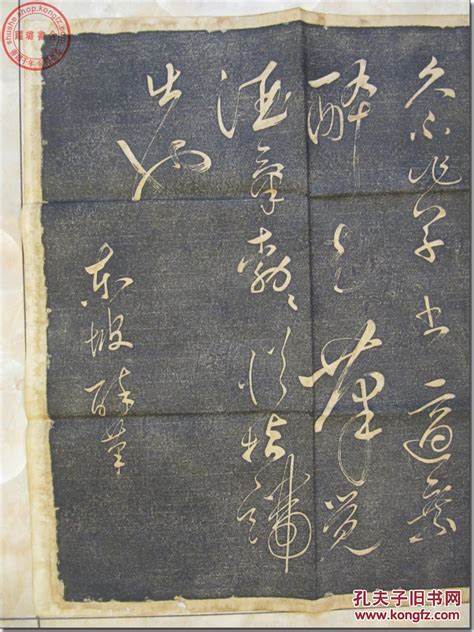 久不作草書適乘
醉走筆覺
酒氣勃々從指端
出也
東坡醉筆
shushe.shop.kongfz.com
孔夫子旧书网
www.kongfz.com